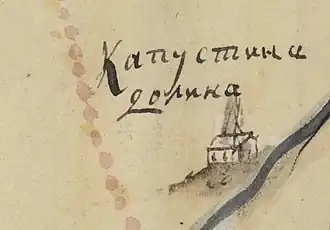 Капустина
долина